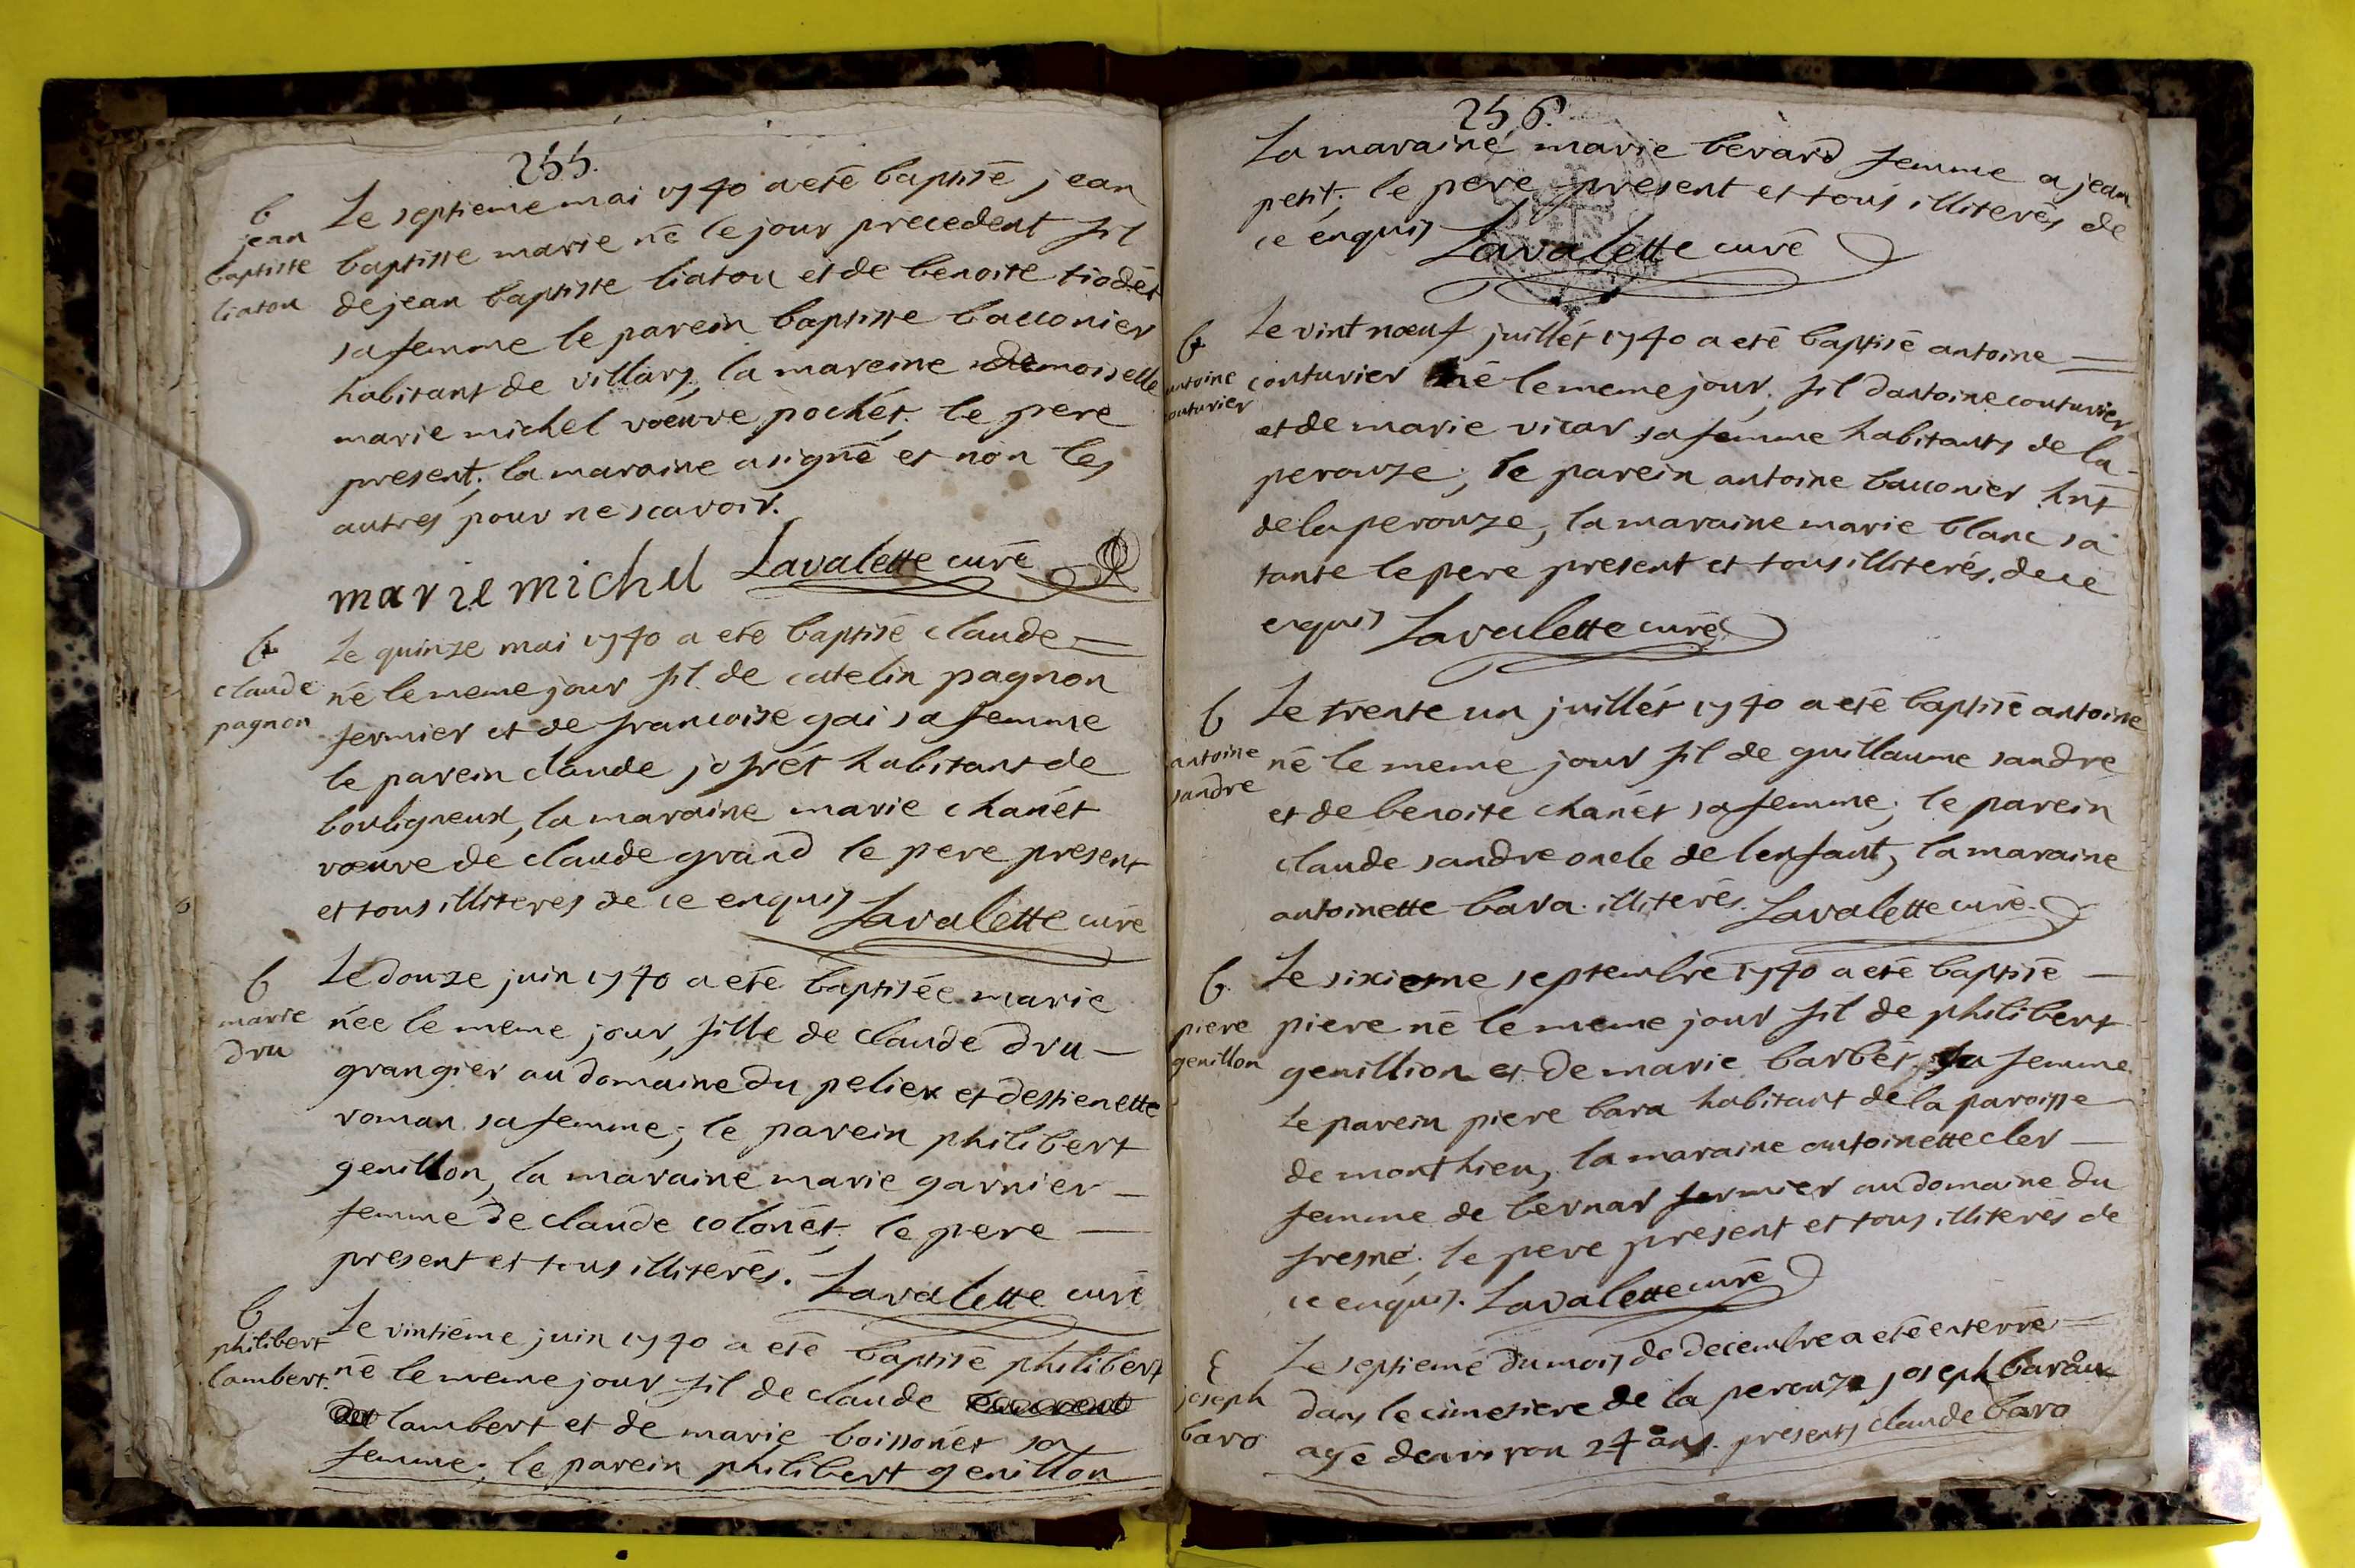 255.
b
jean
baptiste
liaton
Le septieme mai 1740 a eté baptisé jean
baptiste marie né le jour precedent fil
de jean baptiste liaton et de benoite tiodet
sa femme le parein baptiste bauonier
habitant de villars, la mareine demoiselle
marie michel voeuve pochét; le pere
present; la maraine a signé et non les
autres pour ne scavoir.
marie michel Lavalette curé
b
claude
pagnon
Le quinze mai 1740 a eté baptisé claude
né le meme jour fil de catelin pagnon
fermier et de francoise gai sa femme
le parein claude jofrét habitant de
bouligneux, la maraine marie chanét
voeuve de claude grand le pere present
et tous illiteres de ce enquis Lavalette curé
b
marie
dru
Le douze juin 1740 a eté baptisée marie
née le meme jour, fille de claude dru
grangier au domaine du pelier et destienette
roman sa femme; le parein philibert
genillon, la maraine marie garnier
femme de claude colonét, le pere
present et tous illiterés. Lavalette curé
b
philibert
lambert.
Le vintiéme juin 1740 a eté baptisé philibert
né le meme jour fil de claude
lambert et de marie boissonét sa
femme; le parein philibert genillon
256.
La maraine marie berard femme a jean
petit; le pere present et tous illiterés de
ce enquis Lavalette curé
b
antoine
couturier
Le vint noeuf juillét 1740 a eté baptisé antoine
couturier né le meme jour, fil dantoine couturier
et de marie vicar sa femme habitants de la
perouze; le parein antoine bauonier hnt
de la perouze, la maraine marie blanc sa
tante le pere present et tous illiterés. de ce
enquis Lavalette curé
b
antoine
sandre
Le trente un juillét 1740 a eté baptisé antoine
né le meme jour fil de guillaume sandre
et de benoite chanét sa femme; le parein
claude sandre oncle de lenfant, la maraine
antoinette bara. illiterés. Lavalette curé.
b.
piere
genillon
Le sixieme septembre 1740 a eté baptisé
piere né le meme jour fil de philibert
genillion et de marie barbét sa femme
le parein piere bara habitant de la paroisse
de monthieu, la maraine antoinette cler
femme de bernar fermier au domaine du
fresne; le pere present et tous illiterés de
ce enquis. Lavalette curé
E
joseph
baro
Le septieme du mois de decembre a eté enterré
dans le cimetiere de la perouze joseph barau
agé denviron 24 ans. presents claude baro